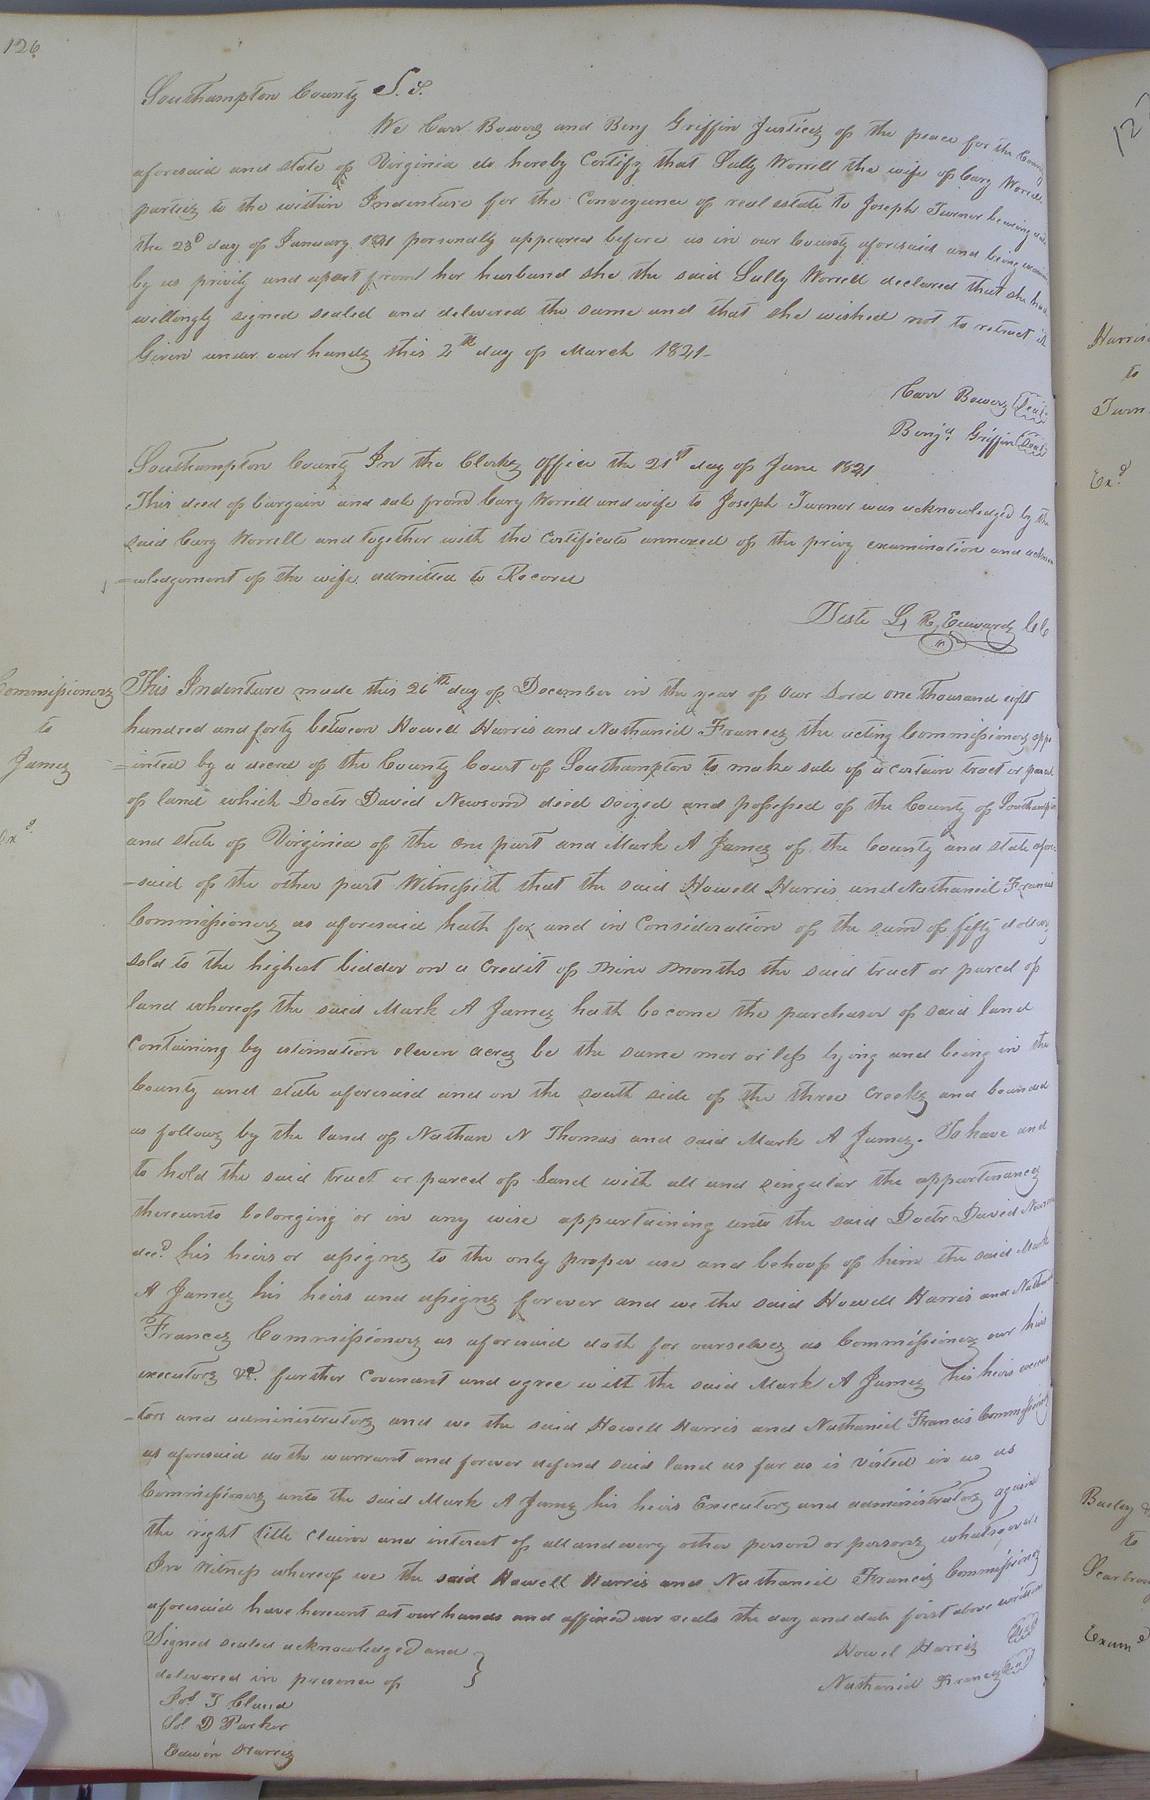 126
Southampton County S.S.
We Carr Bowerz and Benj Griffin Justicez of the peace for the County
aforesaid and state of Virginia do hereby Certify that Sally Worrell the wife of Cary Worrell
partiez to the within Indenture for the Conveyance of real estate to Joseph Turnor bearing date
the 23d day of January 1841 personally appeared before us in our County aforesaid and being examined
by us privily and apart from her husband she the said Sally Worrell declared that she had
willingly signed sealed and delivered the same and that she wished not to retract it
Given under our handz this 2th day of March 1841-
Carr Bowerz Seal
Benja Griffin Seal
Southampton County In the Clerkz Office the 21st day of June 1841
This deed of bargain and sale from Cary Worrell and wife to Joseph Turnor was acknowledged by the
said Cary Worrell and together with the Certificate annexed of the privy examination and ackno
=wledgement of the wife admitted to Record
Teste L R Edwardz ClC
Commissionerz
to
Jamez
Exd
This Indenture made this 26th day of December in the year of our Lord one thousand eight
hundred and forty between Howell Harris and Nathaniel Francez the acting Commissionerz appo
=inted by a decree of the County Court of Southampton to make sale of a certain tract or parcel
of land which Doctr David Newsom died seized and possessed of the County of Southampton
and state of Virginia of the one part and Mark A Jamez of the County and state afore
-said of the other part Witnesseth that the said Howell Harris and Nathaniel Francis
Commissionerz as aforesaid hath for and in Consideration of the sum of fifty dollarz
sold to the highest bidder on a Credit of Nine Months the said tract or parcel of
land whereof the said Mark A Jamez hath become the purchaser of said land
Containing by estimation eleven acrez be the same mor or less lying and being in the
County and state aforesaid and on the south side of the three Creekz and bounded
as followz by the land of Nathan N Thomas and said Mark A Jamez. To have and
to hold the said tract or parcel of Land with all and singular the appurtenancez
thereunto belonging or in any wise appurtaining unto the said Doctr David Newsom
decd his heirs or assignz to the only proper use and behoof of him the said Mark
A Jamez his heirs and assignz forever and we the said Howell Harris and Nathaniel
Francez Commissionerz as aforesaid doth for ourselvez as Commissionerz our heirs
executorz &c. further Covenant and agree with the said Mark A Jamez his heirs execu
-tors and administratorz and we the said Howell Harris and Nathaniel Francis Commissionerz
as aforesaid do the warrant and forever defend said land as far as is Visted in us as
Commissionerz unto the said Mark A Jamez his heirs Executorz and administratorz again
the right title claim and interest of all and every other person or personz whatsoever
In Witness whereof we the said Howell Harris and Nathaniel Franciz Commissionerz
aforesaid have hereunt set our hands and affixed our seals the day and date first above written
Signed sealed acknowledged and
delivered in presence of
Howel Harriz Seal
Nathaniel Francez Seal
Jos T Claud
Sol D Parker
Edwin Harriz
127
Harris
to
Turn
Exd
to
Examd